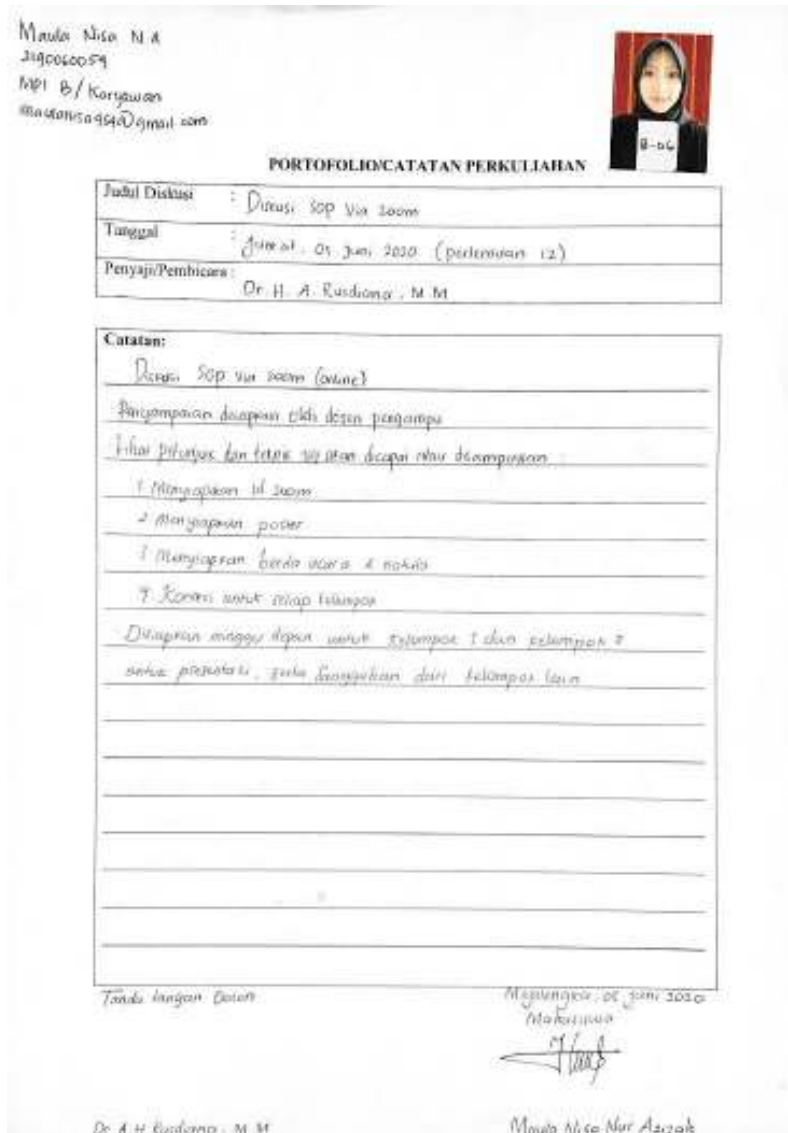 Maula Nisa N A
2190060059
MPI B / Karyawan
@gmail.com
B-06
PORTOFOLIO/CATATAN PERKULIAHAN
Judul Diskusi : Diskusi SOP Via Zoom
Tanggal : Jum'at, 05 Juni 2020 (pertemuan 12)
Penyaji/Pembicara : Dr. H. A. Rusdiana, M.M
Catatan:
Diskusi SOP Via zoom (online)
Penyampaian disiapkan oleh dosen pengampu
Lihat petunjuk dan teknis yg akan dicapai atau disampaikan :
1 Menyiapkan Id zoom
2 Menyiapkan poster
3 Menyiapkan berita acara & notula
4 Koneksi untuk setiap kelompok
Disiapkan minggu depan untuk kelompok 1 dan kelompok
untuk presentasi, serta sanggahan dari kelompok lain
Tanda tangan Dosen
Majalengka, 05 Juni 2020
Mahasiswa
Dr. A. H. Rusdiana, M.M
Maula Nisa Nur Azizah